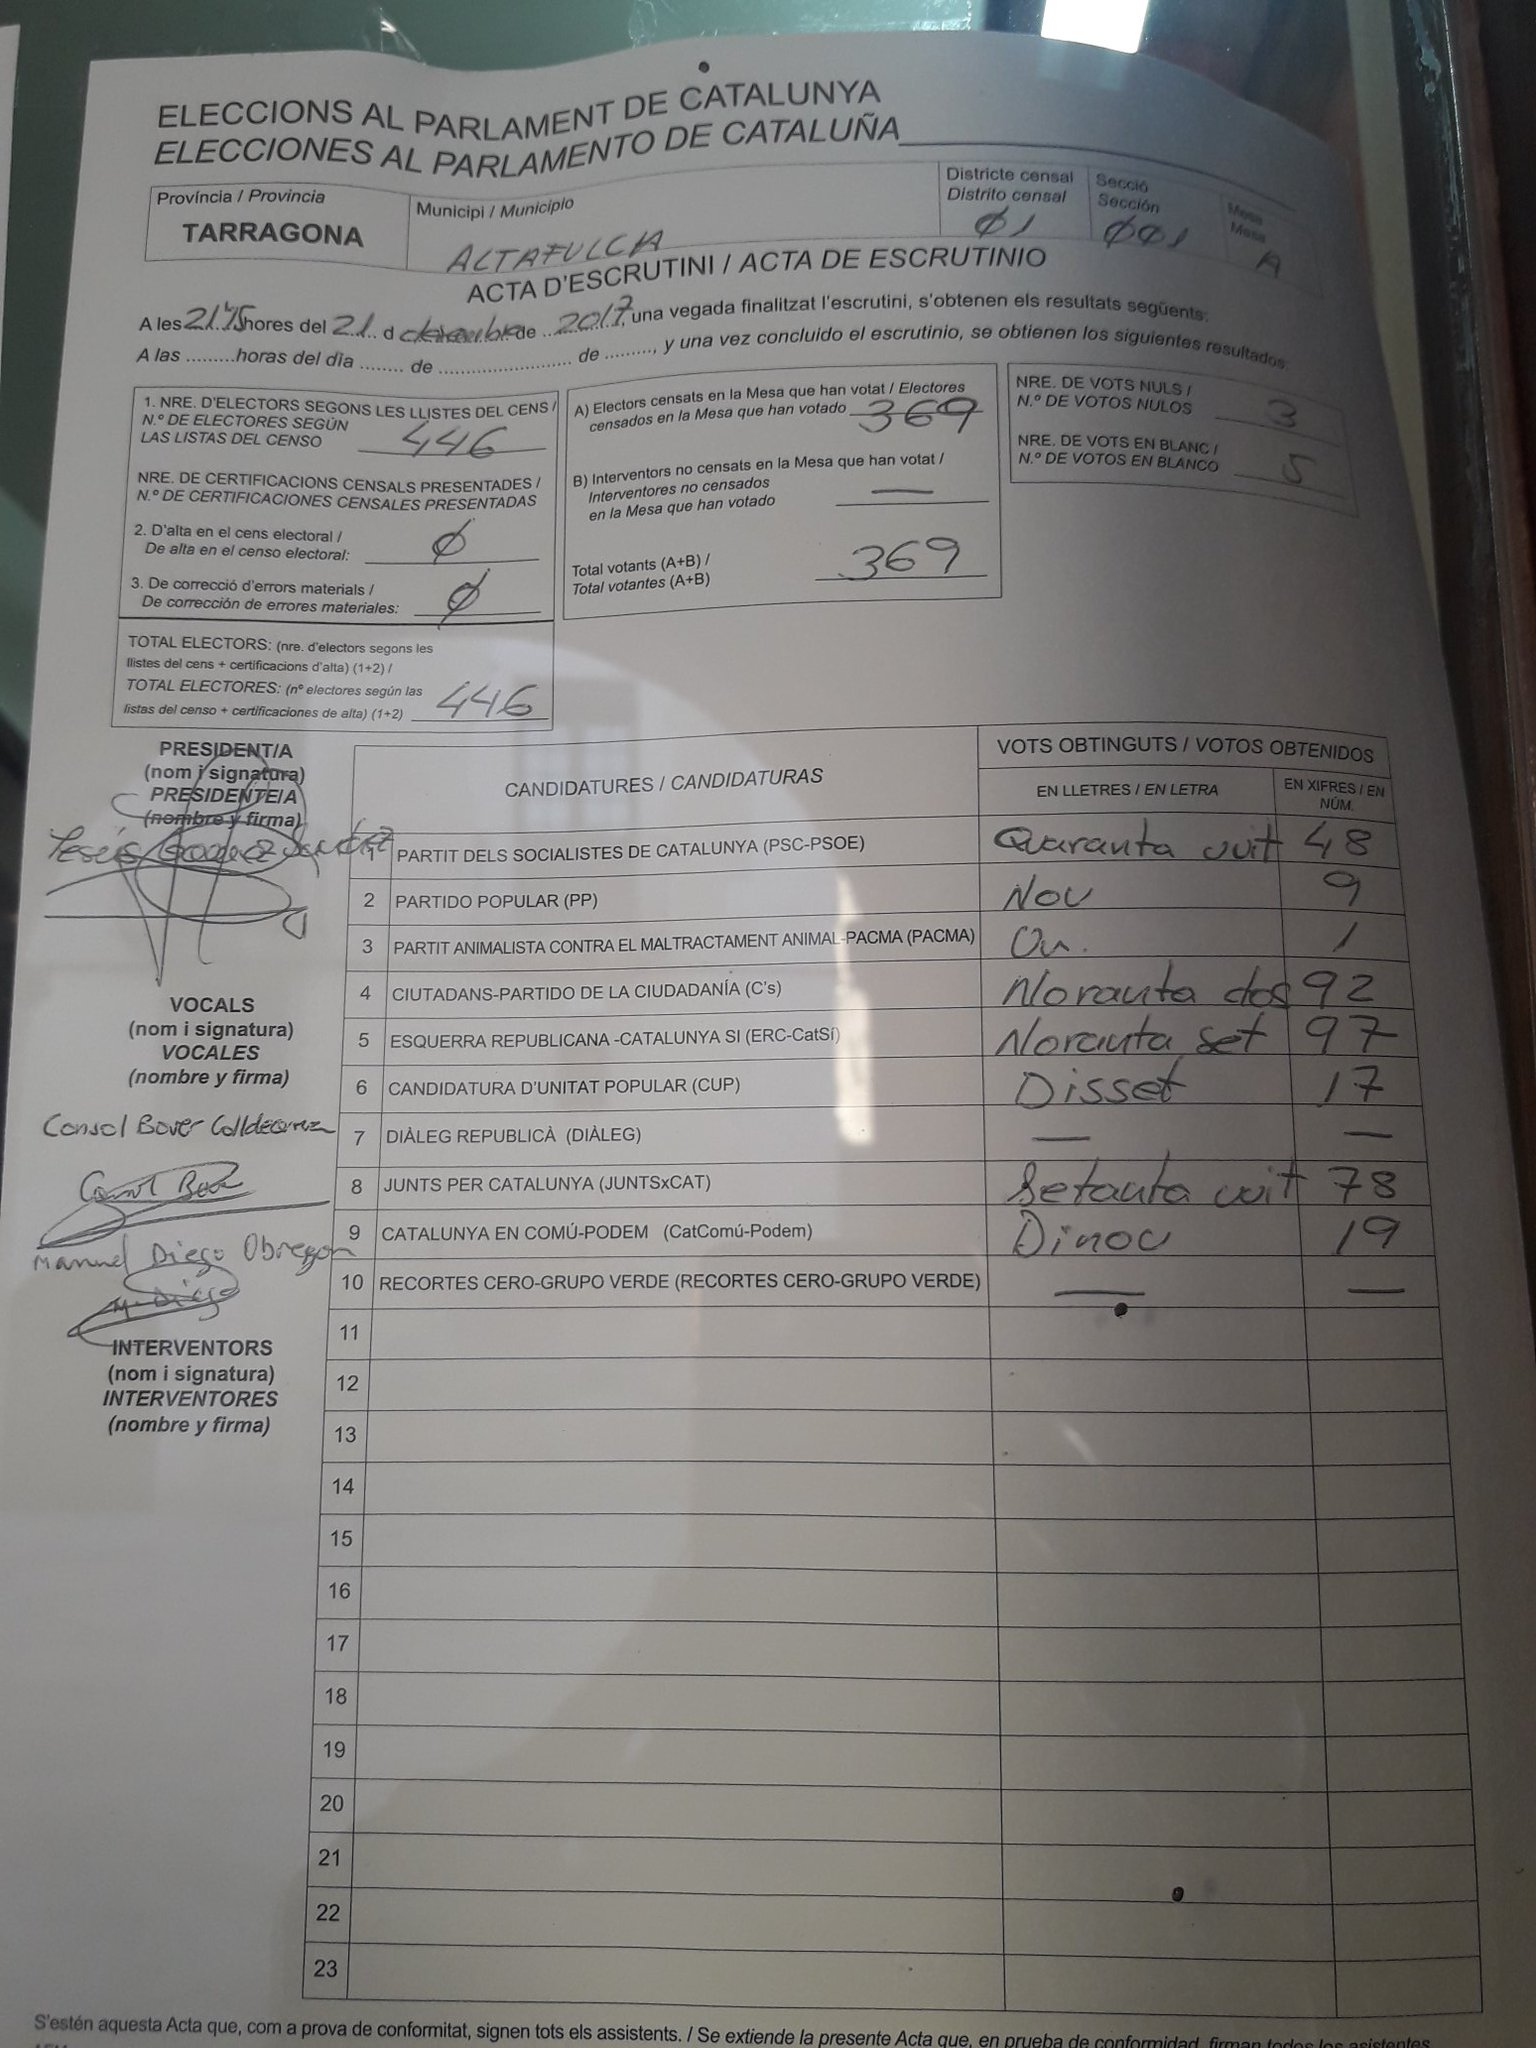 ELECCIONS AL PARLAMENT DE CATALUNYA
ELECCIONES AL PARLAMENTO DE CATALUÑA
Província / Provincia
TARRAGONA
Municipi / Municipio
ALTAFULCIA
Districte censal
Distrito censal
01
Secció
Sección
001
Mesa
Mesa
A
ACTA D'ESCRUTINI / ACTA DE ESCRUTINIO
A les 21'45 hores del 21 d desembre de 2017, una vegada finalitzat l'escrutini, s'obtenen els resultats següents:
A las .........horas del dìa ........ de ........................ de ........., y una vez concluido el escrutinio, se obtienen los siguientes resultados:
1. NRE. D'ELECTORS SEGONS LES LLISTES DEL CENS /
N.º DE ELECTORES SEGÚN
LAS LISTAS DEL CENSO 446
NRE. DE CERTIFICACIONS CENSALS PRESENTADES /
N.º DE CERTIFICACIONES CENSALES PRESENTADAS
2. D'alta en el cens electoral /
De alta en el censo electoral: 0
3. De correcció d'errors materials /
De corrección de errores materiales: 0
TOTAL ELECTORS: (nre. d'electors segons les
llistes del cens + certificacions d'alta) (1+2) /
TOTAL ELECTORES: (nº electores según las
listas del censo + certificaciones de alta) (1+2) 446
A) Electors censats en la Mesa que han votat / Electores
censados en la Mesa que han votado 369
B) Interventors no censats en la Mesa que han votat /
Interventores no censados
en la Mesa que han votado —
Total votants (A+B) /
Total votantes (A+B) 369
NRE. DE VOTS NULS /
N.º DE VOTOS NULOS 3
NRE. DE VOTS EN BLANC /
N.º DE VOTOS EN BLANCO 5
PRESIDENT/A
(nom i signatura)
PRESIDENTE/A
(nombre y firma)
Jesús
VOCALS
(nom i signatura)
VOCALES
(nombre y firma)
Consol Bover
Consol Bover
Manuel Diego Obregon
M. Diego
INTERVENTORS
(nom i signatura)
INTERVENTORES
(nombre y firma)
CANDIDATURES / CANDIDATURAS
VOTS OBTINGUTS / VOTOS OBTENIDOS
EN LLETRES / EN LETRA
EN XIFRES / EN
NÚM.
1 PARTIT DELS SOCIALISTES DE CATALUNYA (PSC-PSOE) Quaranta vuit 48
2 PARTIDO POPULAR (PP) Nou 9
3 PARTIT ANIMALISTA CONTRA EL MALTRACTAMENT ANIMAL-PACMA (PACMA) Un. 1
4 CIUTADANS-PARTIDO DE LA CIUDADANÍA (C's) Noranta dos 92
5 ESQUERRA REPUBLICANA -CATALUNYA SI (ERC-CatSí) Noranta set 97
6 CANDIDATURA D'UNITAT POPULAR (CUP) Disset 17
7 DIÀLEG REPUBLICÀ (DIÀLEG) — —
8 JUNTS PER CATALUNYA (JUNTSxCAT) Setanta vuit 78
9 CATALUNYA EN COMÚ-PODEM (CatComú-Podem) Dinou 19
10 RECORTES CERO-GRUPO VERDE (RECORTES CERO-GRUPO VERDE) — —
11
12
13
14
15
16
17
18
19
20
21
22
23
S'estén aquesta Acta que, com a prova de conformitat, signen tots els assistents. / Se extiende la presente Acta que, en prueba de conformidad, firman todos los asistentes